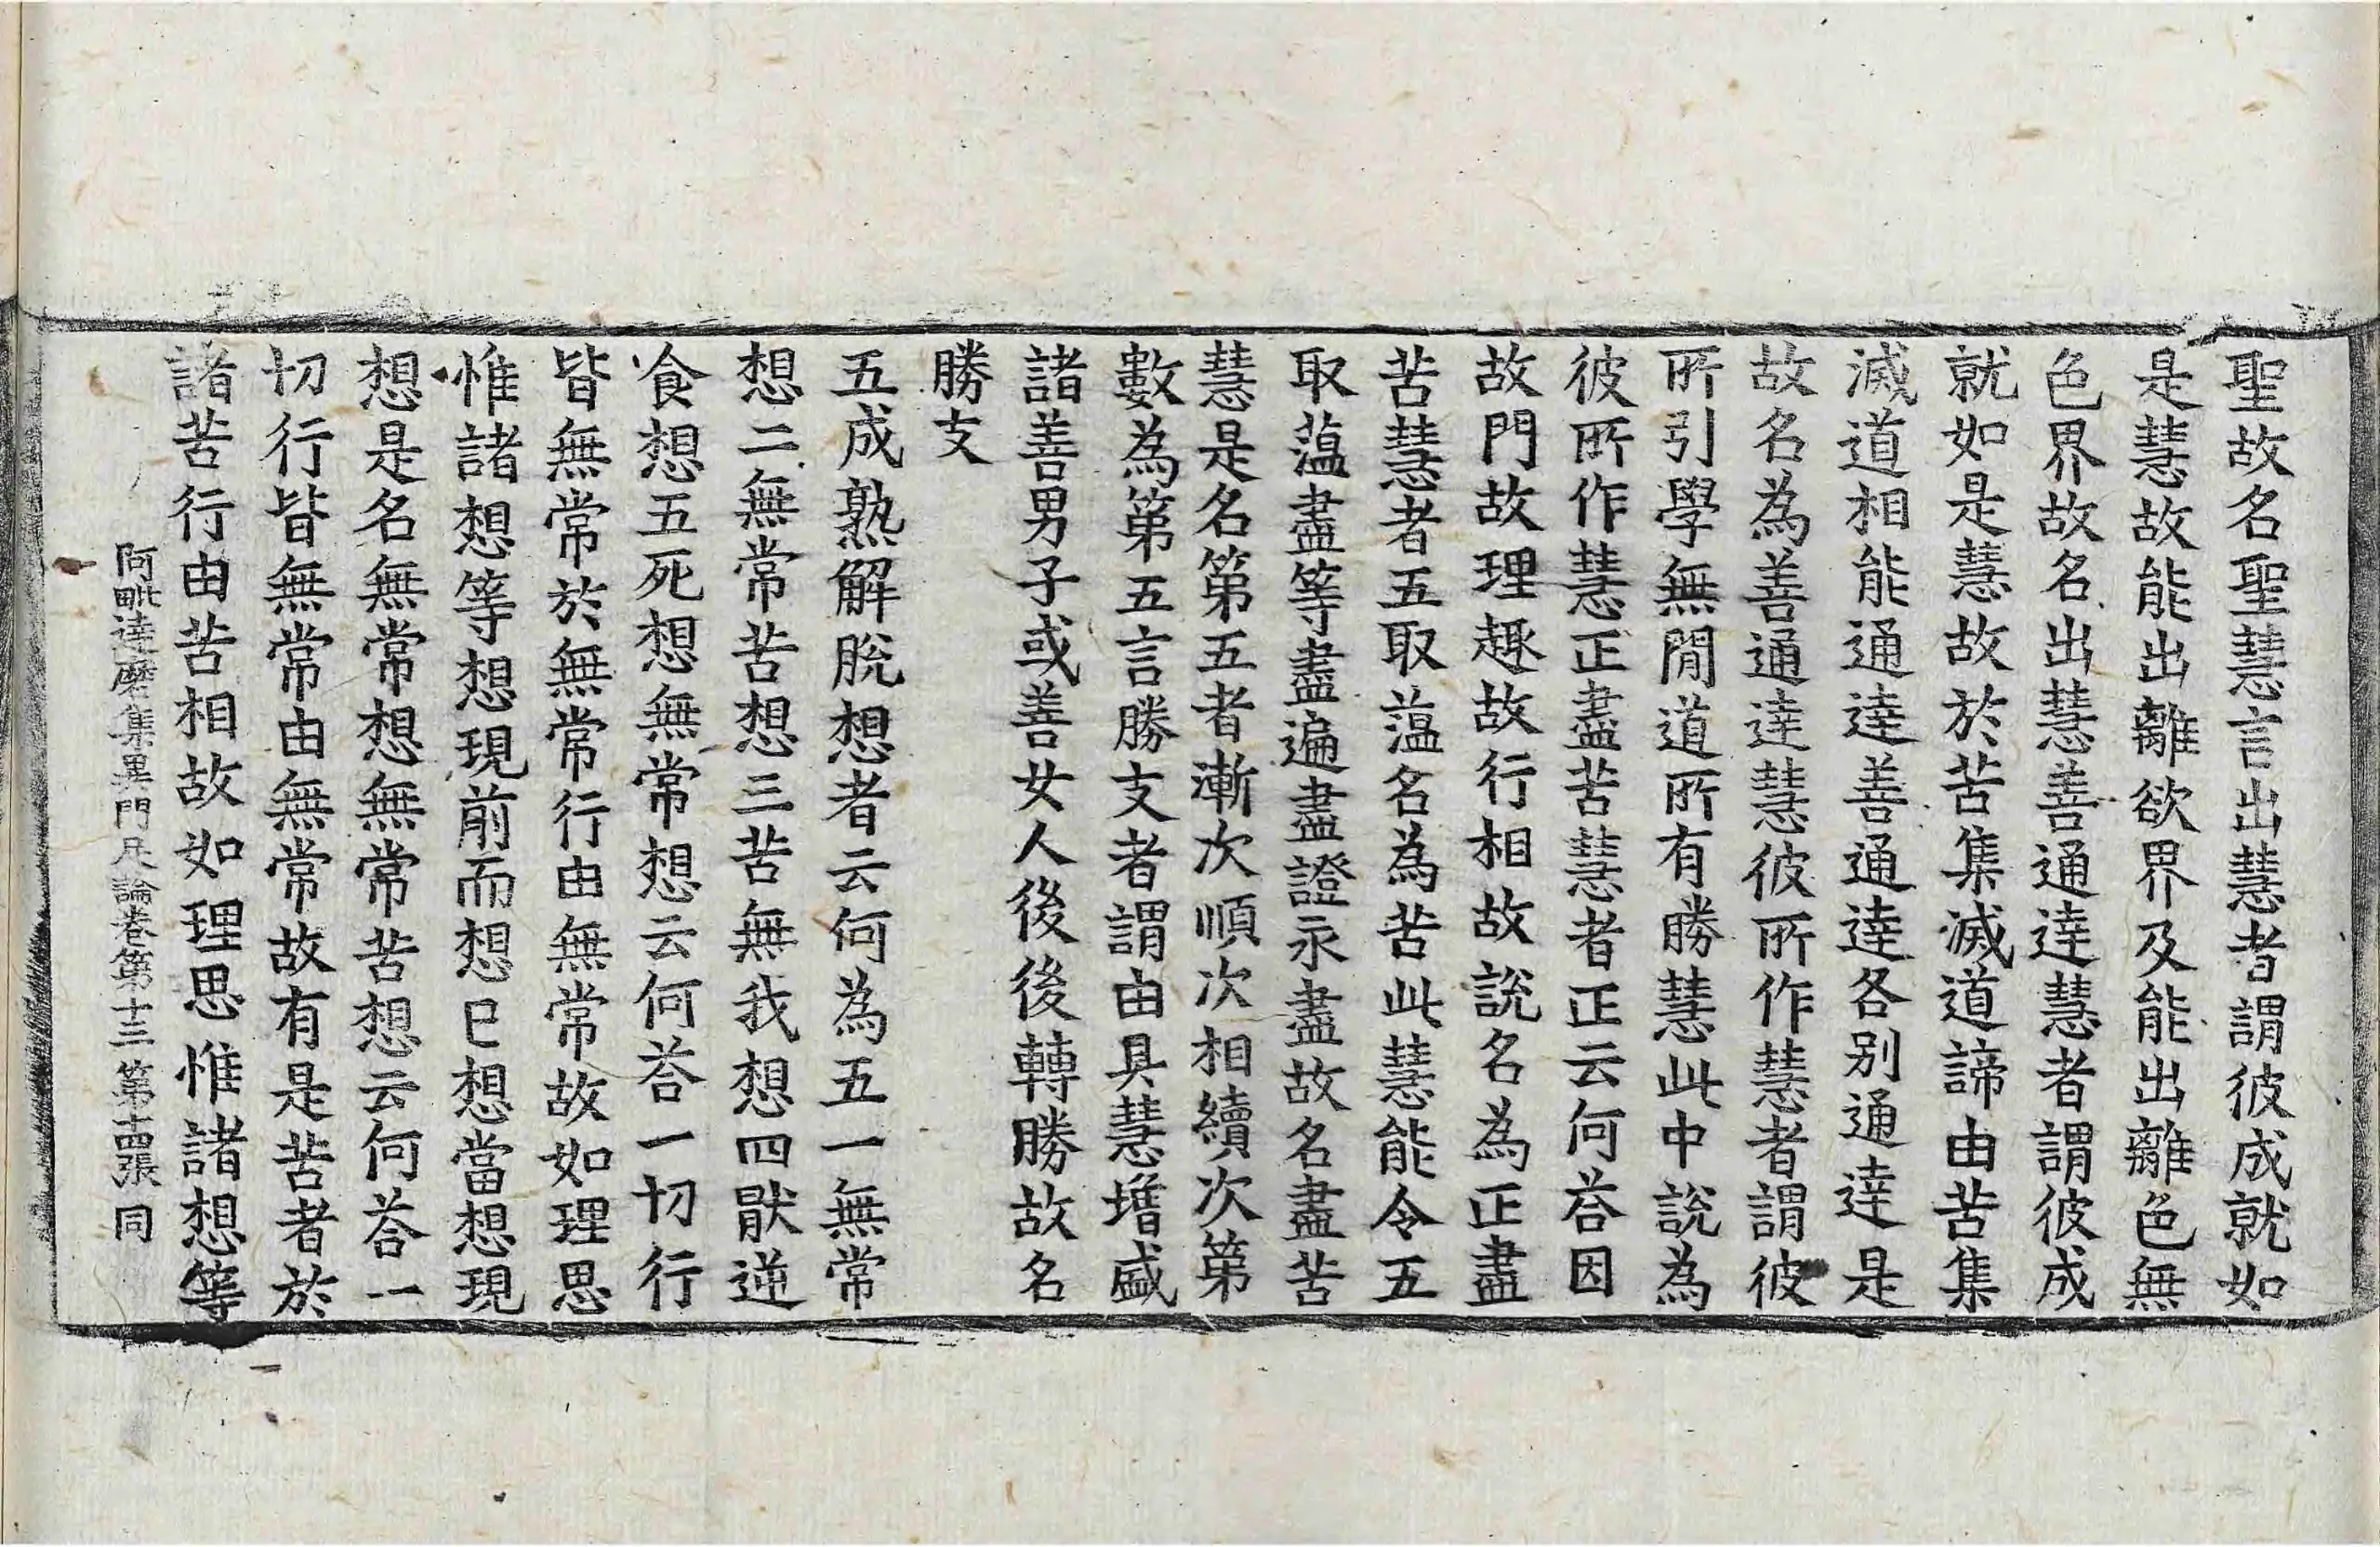 聖故名聖慧言出慧者謂彼成就如
是慧故能出離欲界及能出離色無
色界故名出慧善通達慧者謂彼成
就如是慧故於苦集滅道諦由苦集
滅道相能通達善通達各別通達是
故名為善通達慧彼所作慧者謂彼
所引學無間道所有勝慧此中說為
彼所作慧正盡苦慧者正云何荅因
故門故理趣故行相故說名為正盡
苦慧者五取薀名為苦此慧能令五
取薀盡等盡遍盡證永盡故名盡苦
慧是名第五者漸次順次相續次第
數為第五言勝支者謂由具慧增盛
諸善男子或善女人後後轉勝故名
勝支
五成熟解脫想者云何為五一無常
想二無常苦想三苦無我想四猒逆
食想五死想無常想云何荅一切行
皆無常於無常行由無常故如理思
惟諸想等想現前而想已想當想現
想是名無常想無常苦想云何荅一
切行皆無常由無常故有是苦者於
諸苦行由苦相故如理思惟諸想等
阿毗達磨集異門足論卷第十三 第十四張 同